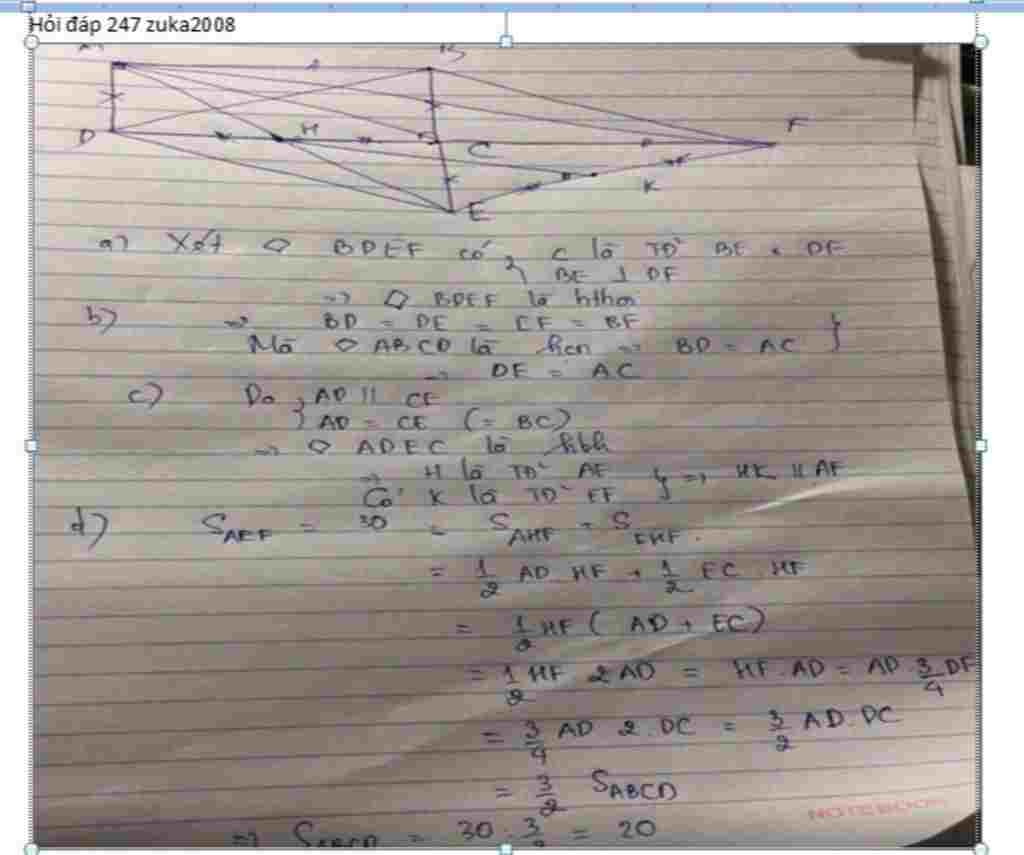 Hỏi đáp 247 zuka2008
A B
D H C F
K
E
a) Xét ◇ BDEF có { C là TĐ BE , DF
BE ⊥ DF
=> ◇ BDEF là hthoi
b) => BD = DE = EF = BF
Mà ◇ ABCD là hcn => BD = AC }
=> DE = AC
c) Do { AD // CE
AD = CE (= BC)
=> ◇ ADEC là hbh
=> H là TĐ AE } => HK // AF
Có K là TĐ EF
d) S_AEF = 30 = S_AHF + S_EHF.
= 1/2 AD HF + 1/2 EC HF
= 1/2 HF ( AD + EC)
= 1/2 HF 2AD = HF . AD = AD 3/4 DF
= 3/4 AD 2 . DC = 3/2 AD . DC
= 3/2 S_ABCD
NOTEBOOK
=> S_ABCD = 30 : 3/2 = 20